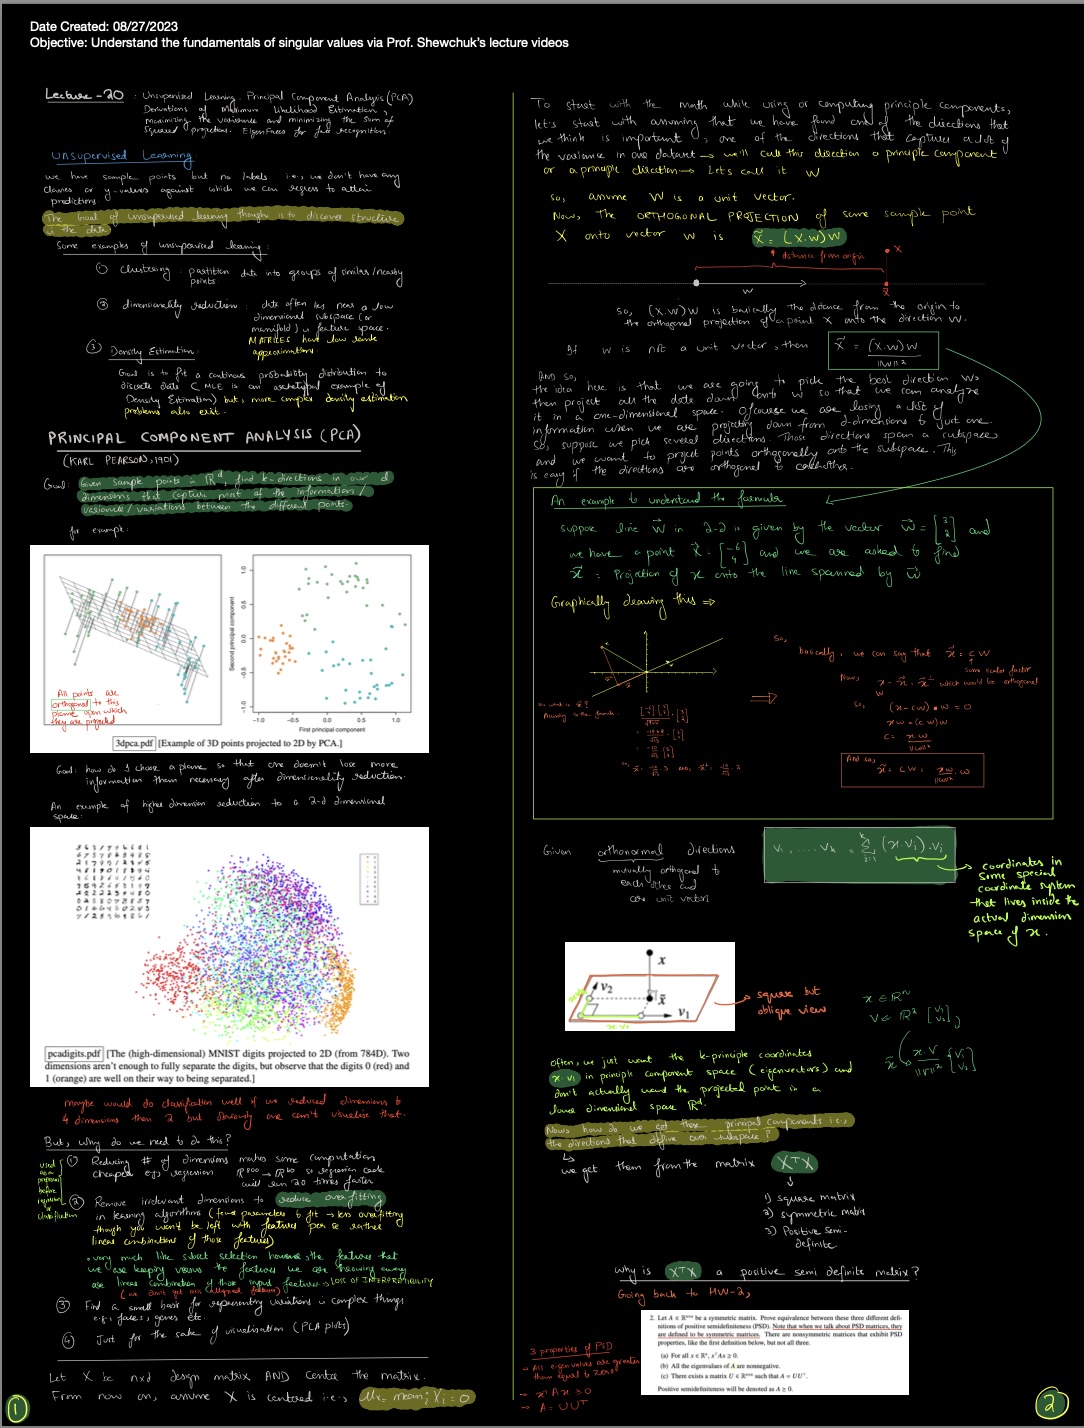 Date Created: 08/27/2023
Objective: Understand the fundamentals of singular values via Prof. Shewchuk's lecture videos
Lecture - 20 : Unsupervised Learning. Principal Component Analysis (PCA)
Derivations of Maximum Likelihood Estimation,
maximizing the variance and minimizing the sum of
squared projection. Eigenfaces for face recognition.
Unsupervised Learning.
we have sample points but no labels i.e., we don't have any
classes or y-values against which we can regress to attain
predictions.
The Goal of unsupervised learning though is to discover structure
in the data
Some examples of unsupervised learning:
① Clustering : partition data into groups of similar/nearby
points.
② dimensionality reduction : data often lies near a low
dimensional subspace (or
manifold) in feature space.
MATRICES have low rank
approximations.
③ Density Estimation.
Goal is to fit a continous probability distribution to
discrete data (MLE is an archetypal example of
Density Estimation) but, more complex density estimation
problems also exist.
PRINCIPAL COMPONENT ANALYSIS (PCA)
(KARL PEARSON, 1901)
Goal: Given sample points in ℝᵈ, find k-directions in our d
dimensions that capture most of the information/
variance/variations between the different points.
for example:
Second principal component
First principal component
1.0
0.5
0.0
−0.5
−1.0
−1.0 −0.5 0.0 0.5 1.0
All points are
orthogonal to this
plane upon which
they are projected
3dpca.pdf [Example of 3D points projected to 2D by PCA.]
Goal: how do I choose a plane so that one doesn't lose more
information than necessary after dimensionality reduction.
An example of higher dimension reduction to a 2-d dimensional
space:
pcadigits.pdf [The (high-dimensional) MNIST digits projected to 2D (from 784D). Two
dimensions aren't enough to fully separate the digits, but observe that the digits 0 (red) and
1 (orange) are well on their way to being separated.]
Maybe would do classification well if we reduced dimensions to
4 dimensions than 2 but obviously one can't visualize that.
But, why do we need to do this?
① Reducing # of dimensions makes some computation
cheaper e.g., regression
will run 20 times faster
used as a
before
or
classification
② Remove irrelevant dimensions to reduce overfitting
in learning algorithms (fewer parameters to fit → less overfitting
though you won't be left with features per se rather
linear combinations of those features)
· very much like subset selection however, the features that
we are keeping versus the features we are throwing away
are linear combination of those input features is LOSS OF INTERPRETABILITY
(we don't get axis aligned features)
③ Find a small basis for representing variations in complex things
e.g., faces, genes etc.
④ Just for the sake of visualization (PCA plots)
Let X be nxd design matrix AND Centre the matrix.
From now on, assume X is centred i.e., μₓ = mean; Xᵢ = 0
1
To start with the math while using or computing principle components,
let's start with assuming that we have found one of the directions that
we think is important, one of the directions that captures a lot of
the variance in our dataset → we'll call this direction a principle component
or a principle direction → Lets call it W
So, assume W is a unit vector.
Now, The ORTHOGONAL PROJECTION of some sample point
X onto vector w is x̃ = (x.w)w
distance from origin
x
x̃
w
So, (x.w)w is basically the distance from the origin to
the orthogonal projection of a point X onto the direction W.
If w is not a unit vector, then x̃ = (x.w)w / ||w||²
AND so,
the idea here is that we are going to pick the best direction W,
then project all the data down onto W so that we can analyze
it in a one-dimensional space. Ofcourse we are losing a lot of
information when we are projecting down from d-dimensions to just one.
So, suppose we pick several directions. Those directions span a subspace,
and we want to project points orthogonally onto the subspace. This
is easy if the directions are orthogonal to eachother.
An example to understand the formula
suppose line W in 2-D is given by the vector w = [3 2] and
we have a point X = [-6 4] and we are asked to find
x̃ : Projection of x onto the line spanned by w
Graphically drawing this ⇒
So,
basically, we can say that x̃ = cw
some scalar factor
Now, x - x̃ = x⊥ which would be orthogonal
w
So, (x-cw)·w = 0
xw = (cw)w
c = xw / ||w||²
And so,
x̃ = cw = xw/||w||² . w
Given orthonormal directions
mutually orthogonal to
each other and
are unit vectors
v₁, .... vₖ = Σ (x.vᵢ).vᵢ
coordinates in
some special
coordinate system
that lives inside the
actual dimension
space of x.
x
v₂
x̃
v₁
x.v₁
square but
oblique view
x ∈ ℝⁿ
Often, we just want the k-principle coordinates
x.vᵢ in principle component space (eigenvectors) and
don't actually want the projected point in a
lower dimensional space ℝᵈ.
Now, how do we get these principal components i.e.,
the directions that define our subspace?
we get them from the matrix XᵀX
1) square matrix
2) symmetric matrix
3) Positive semi-
definite
why is XᵀX a positive semi definite matrix?
Going back to HW-2,
2. Let A ∈ ℝⁿˣⁿ be a symmetric matrix. Prove equivalence between these three different defi-
nitions of positive semidefiniteness (PSD). Note that when we talk about PSD matrices, they
are defined to be symmetric matrices. There are nonsymmetric matrices that exhibit PSD
properties, like the first definition below, but not all three.
(a) For all x ∈ ℝⁿ, xᵀAx ≥ 0.
(b) All the eigenvalues of A are nonnegative.
(c) There exists a matrix U ∈ ℝⁿˣⁿ such that A = UUᵀ.
Positive semidefiniteness will be denoted as A ≥ 0.
3 properties of PSD
→ All eigenvalues are greater
than equal to zero
→ xᵀAx ≥ 0
→ A = UUᵀ
2